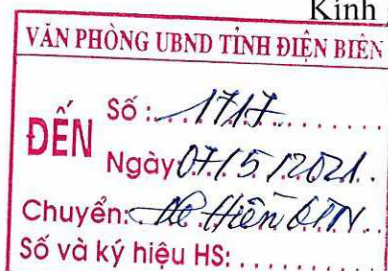 Kính
VĂN PHÒNG UBND TỈNH ĐIỆN BIÊN
ĐẾN
Số: 1717
Ngày 07/5/2021
Chuyển:
Số và ký hiệu HS: